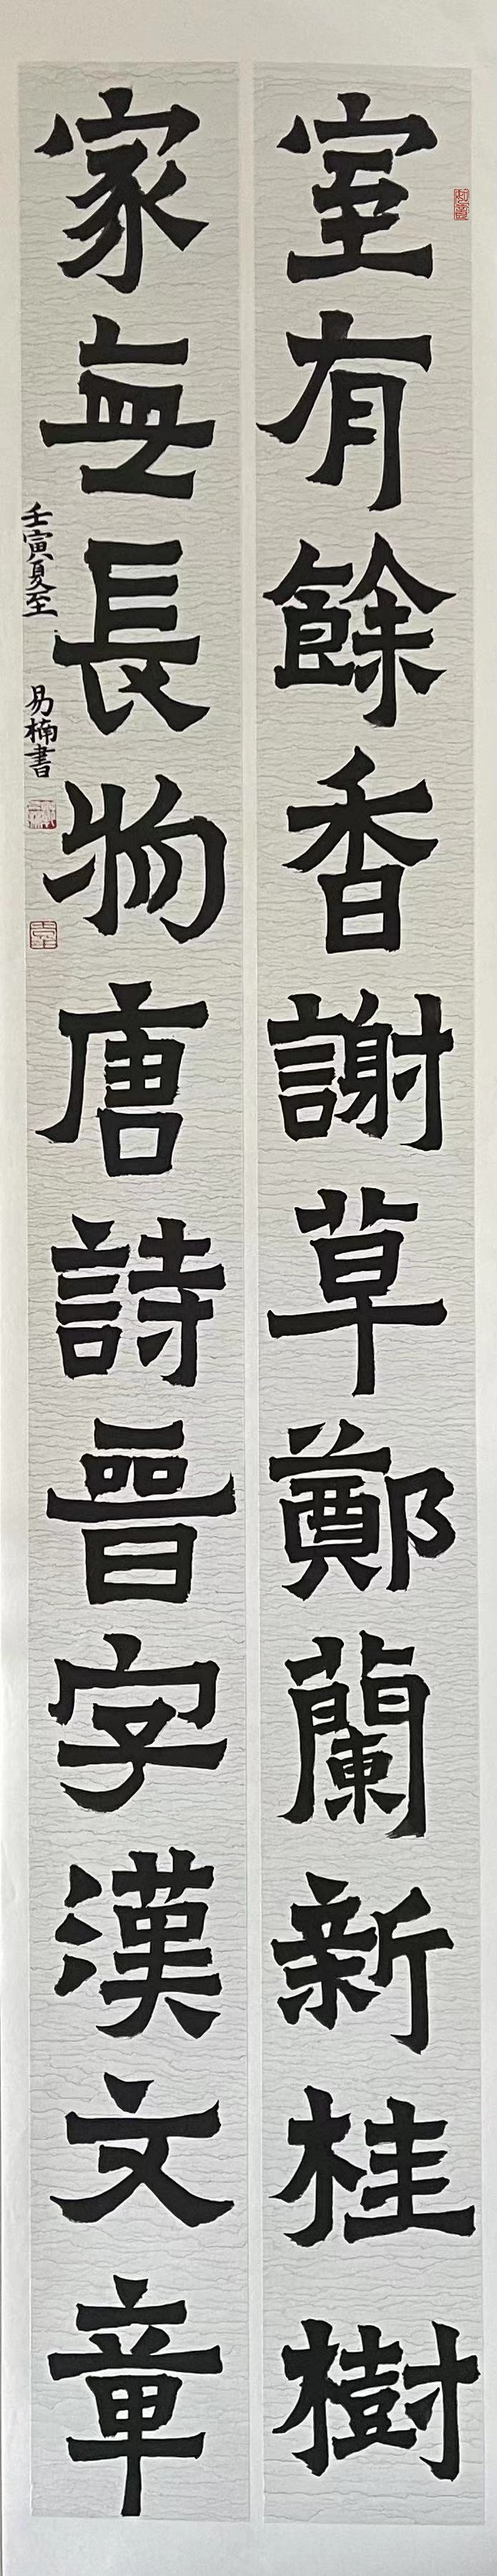 室有餘香謝草鄭蘭新桂樹
家無長物唐詩晉字漢文章
壬寅夏至 易楠書